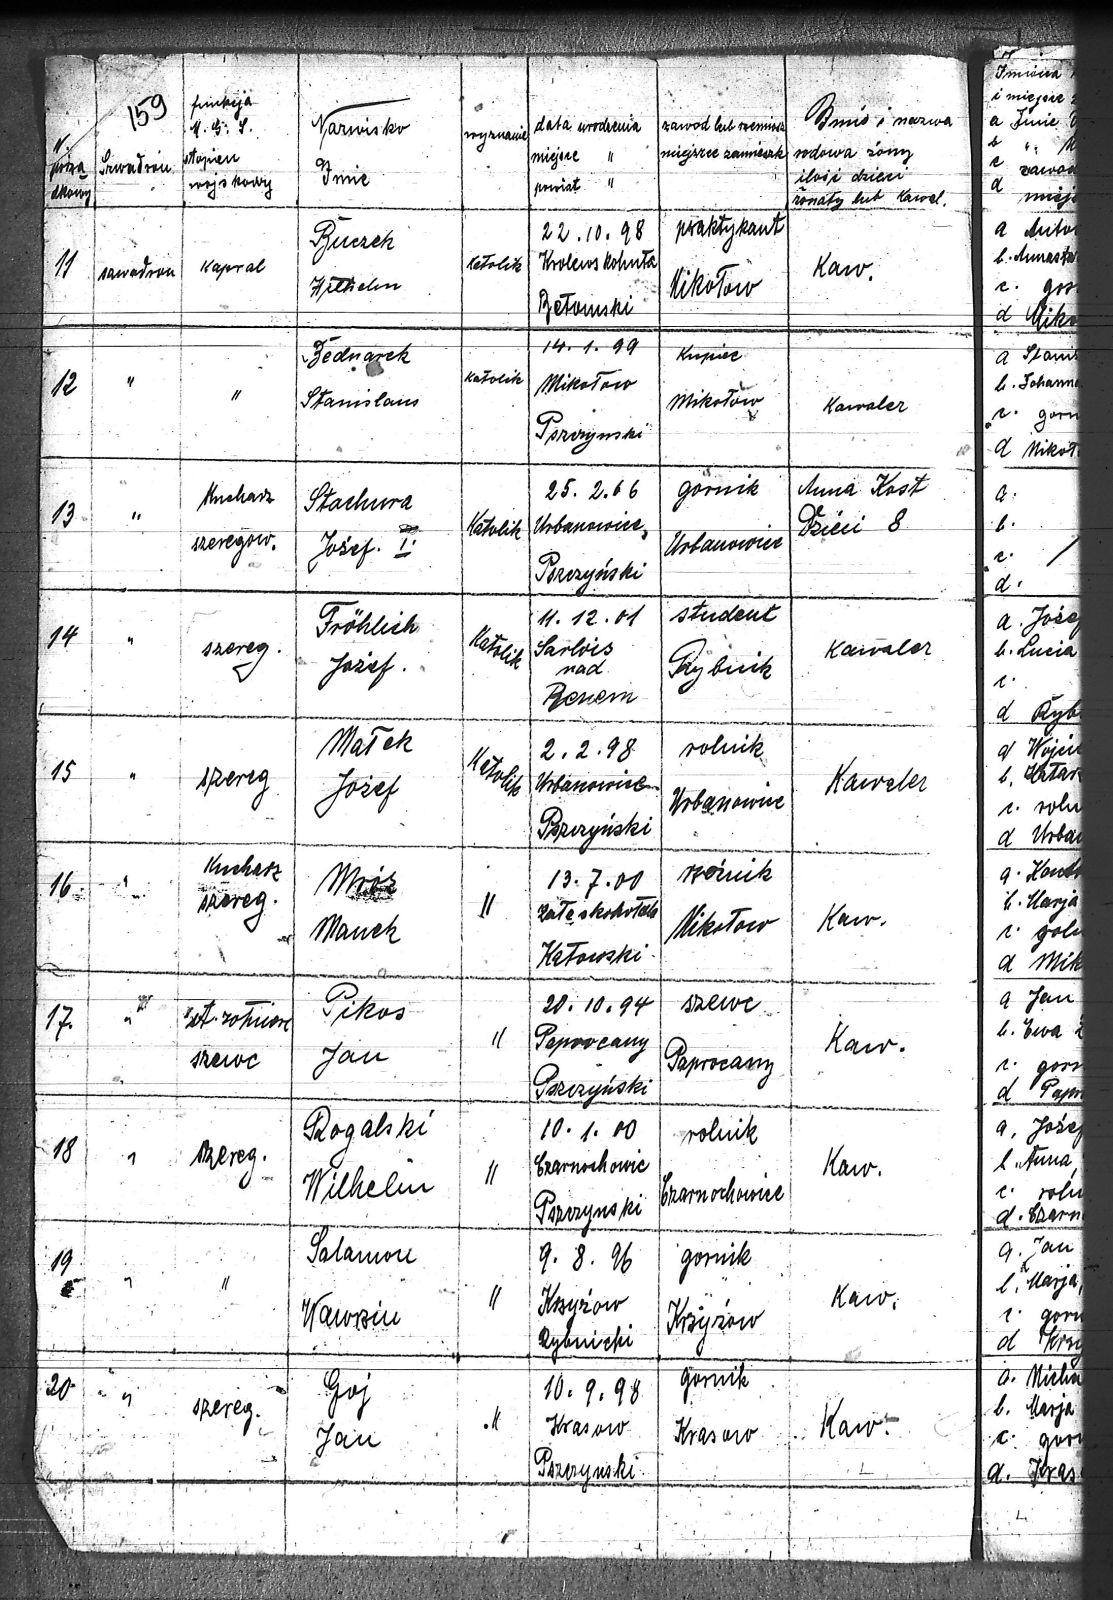 159
N porzą dkowy
Szwadron
funkcja
M. G. S.
stopien
wojskowy
Nazwisko
Imie
wyznanie
data urodzenia
miejsce "
powiat "
zawod lub rzemiosł
miejsce zamieszk
Imie i nazwa
rodowa żony
ilość dzieci
żonaty lub Kawal.
Imiona
i miejsce
a Imie
b "
c zawod
d miejs
11 szwadron Kapral
Buczek
Wilhelm
Katolik
22.10.98
Krolewskohuta
Bytomski
praktykant
Mikołow
Kaw.
a Anto
b. Annasta
c. gor
d Miko
12 " "
Bednarek
Stanislaus
Katolik
14.1.99
Mikołow
Pszczynski
Kupiec
Mikołow
Kawaler
a Stanis
b. Johanna
c. gorn
d Mikoł
13 "
Kucharz
szeregow.
Stachura
Jożef. I.
Katolik
25.2.66
Urbanowice
Pszczyński
górnik
Urbanowice
Anna Kost
Dzieci 8
a.
b.
c. /
d.
14 " szereg.
Fröhlich
Jożef.
Katolik
11.12.01
Sarlois
nad
Renem
student
Rybnik
Kawaler
a. Jożef
b. Lucia
c.
d Ryb
15 " szereg
Małek
Jożef
Katolik
2.2.98
Urbanowice
Pszczyński
rolnik
Urbanowice
Kawaler
a Wojcie
b. Katar
c. roln
d Urba
16 "
Kucharz
szereg.
Mróz
Manek
"
13.7.00
Kątowski
rzeźnik
Mikołow
Kaw.
a.
b. Marja
c. roln
d Mik
17. "
st. żołnierz
szewc
Pikos
Jan
"
20.10.94
Paprocany
Pszczyński
szewc
Paprocany
Kaw.
a Jan
b. Ewa
c. gorn
d Papr
18 " szereg.
Rogalski
Wilhelm
"
10.1.00
Czarnochowic
Pszczynski
rolnik
Czarnochowice
Kaw.
a. Jożef
b. Anna
c. roln
d. Czarn
19 " "
Salamon
Wawrzin
"
9.8.96
Krzyżow
Rybnicki
gornik
Krzyżow
Kaw.
a. Jan
b. Marja,
c. gorn
d Krzy
20 " szereg.
Goj
Jan
"
10.9.98
Krasow
Pszczynski
gornik
Krasow
Kaw.
a. Micha
b. Marja
c. gorn
d. Kras